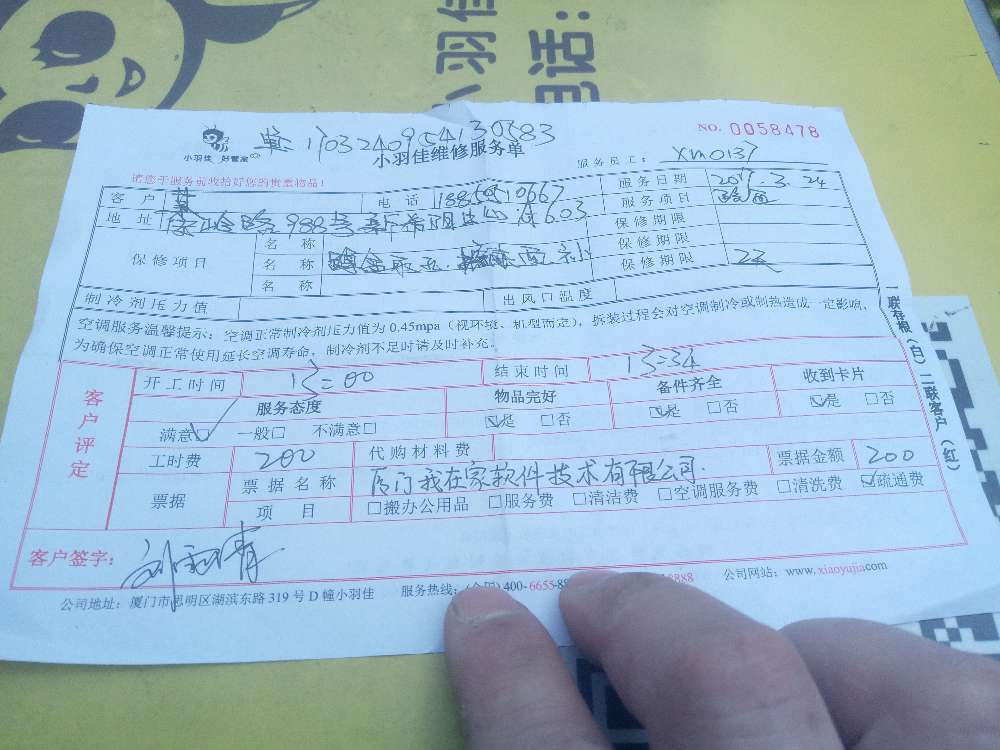 小羽佳
电话:
1703240954130383
NO. 0058478
小羽佳 好管家
小羽佳维修服务单
服务员工: XM0137
请您于服务前收拾好您的贵重物品!
客户 电话 服务日期 2017.3.24
地址 988号 603 服务项目
保修项目 名称 保修期限
名称 保修期限
名称 保修期限
制冷剂压力值 出风口温度
空调服务温馨提示:空调正常制冷剂压力值为 0.45mpa(视环境、机型而定),拆装过程会对空调制冷或制热造成一定影响,
为确保空调正常使用延长空调寿命,制冷剂不足时请及时补充。
一联存根(白)二联客户(红)
客户评定
开工时间 13:00 结束时间 13:34
服务态度 物品完好 备件齐全 收到卡片
满意☑ 一般□ 不满意□ ☑是 □否 ☑是 □否 ☑是 □否
工时费 200 代购材料费
票据 票据名称 厦门我在家软件技术有限公司. 票据金额 200
项目 □搬办公用品 □服务费 □清洁费 □空调服务费 □清洗费 ☑疏通费
客户签字:
公司地址:厦门市思明区湖滨东路 319 号 D 幢小羽佳 服务热线:(全国)400-6655-88 8888 公司网站:www.xiaoyujia.com